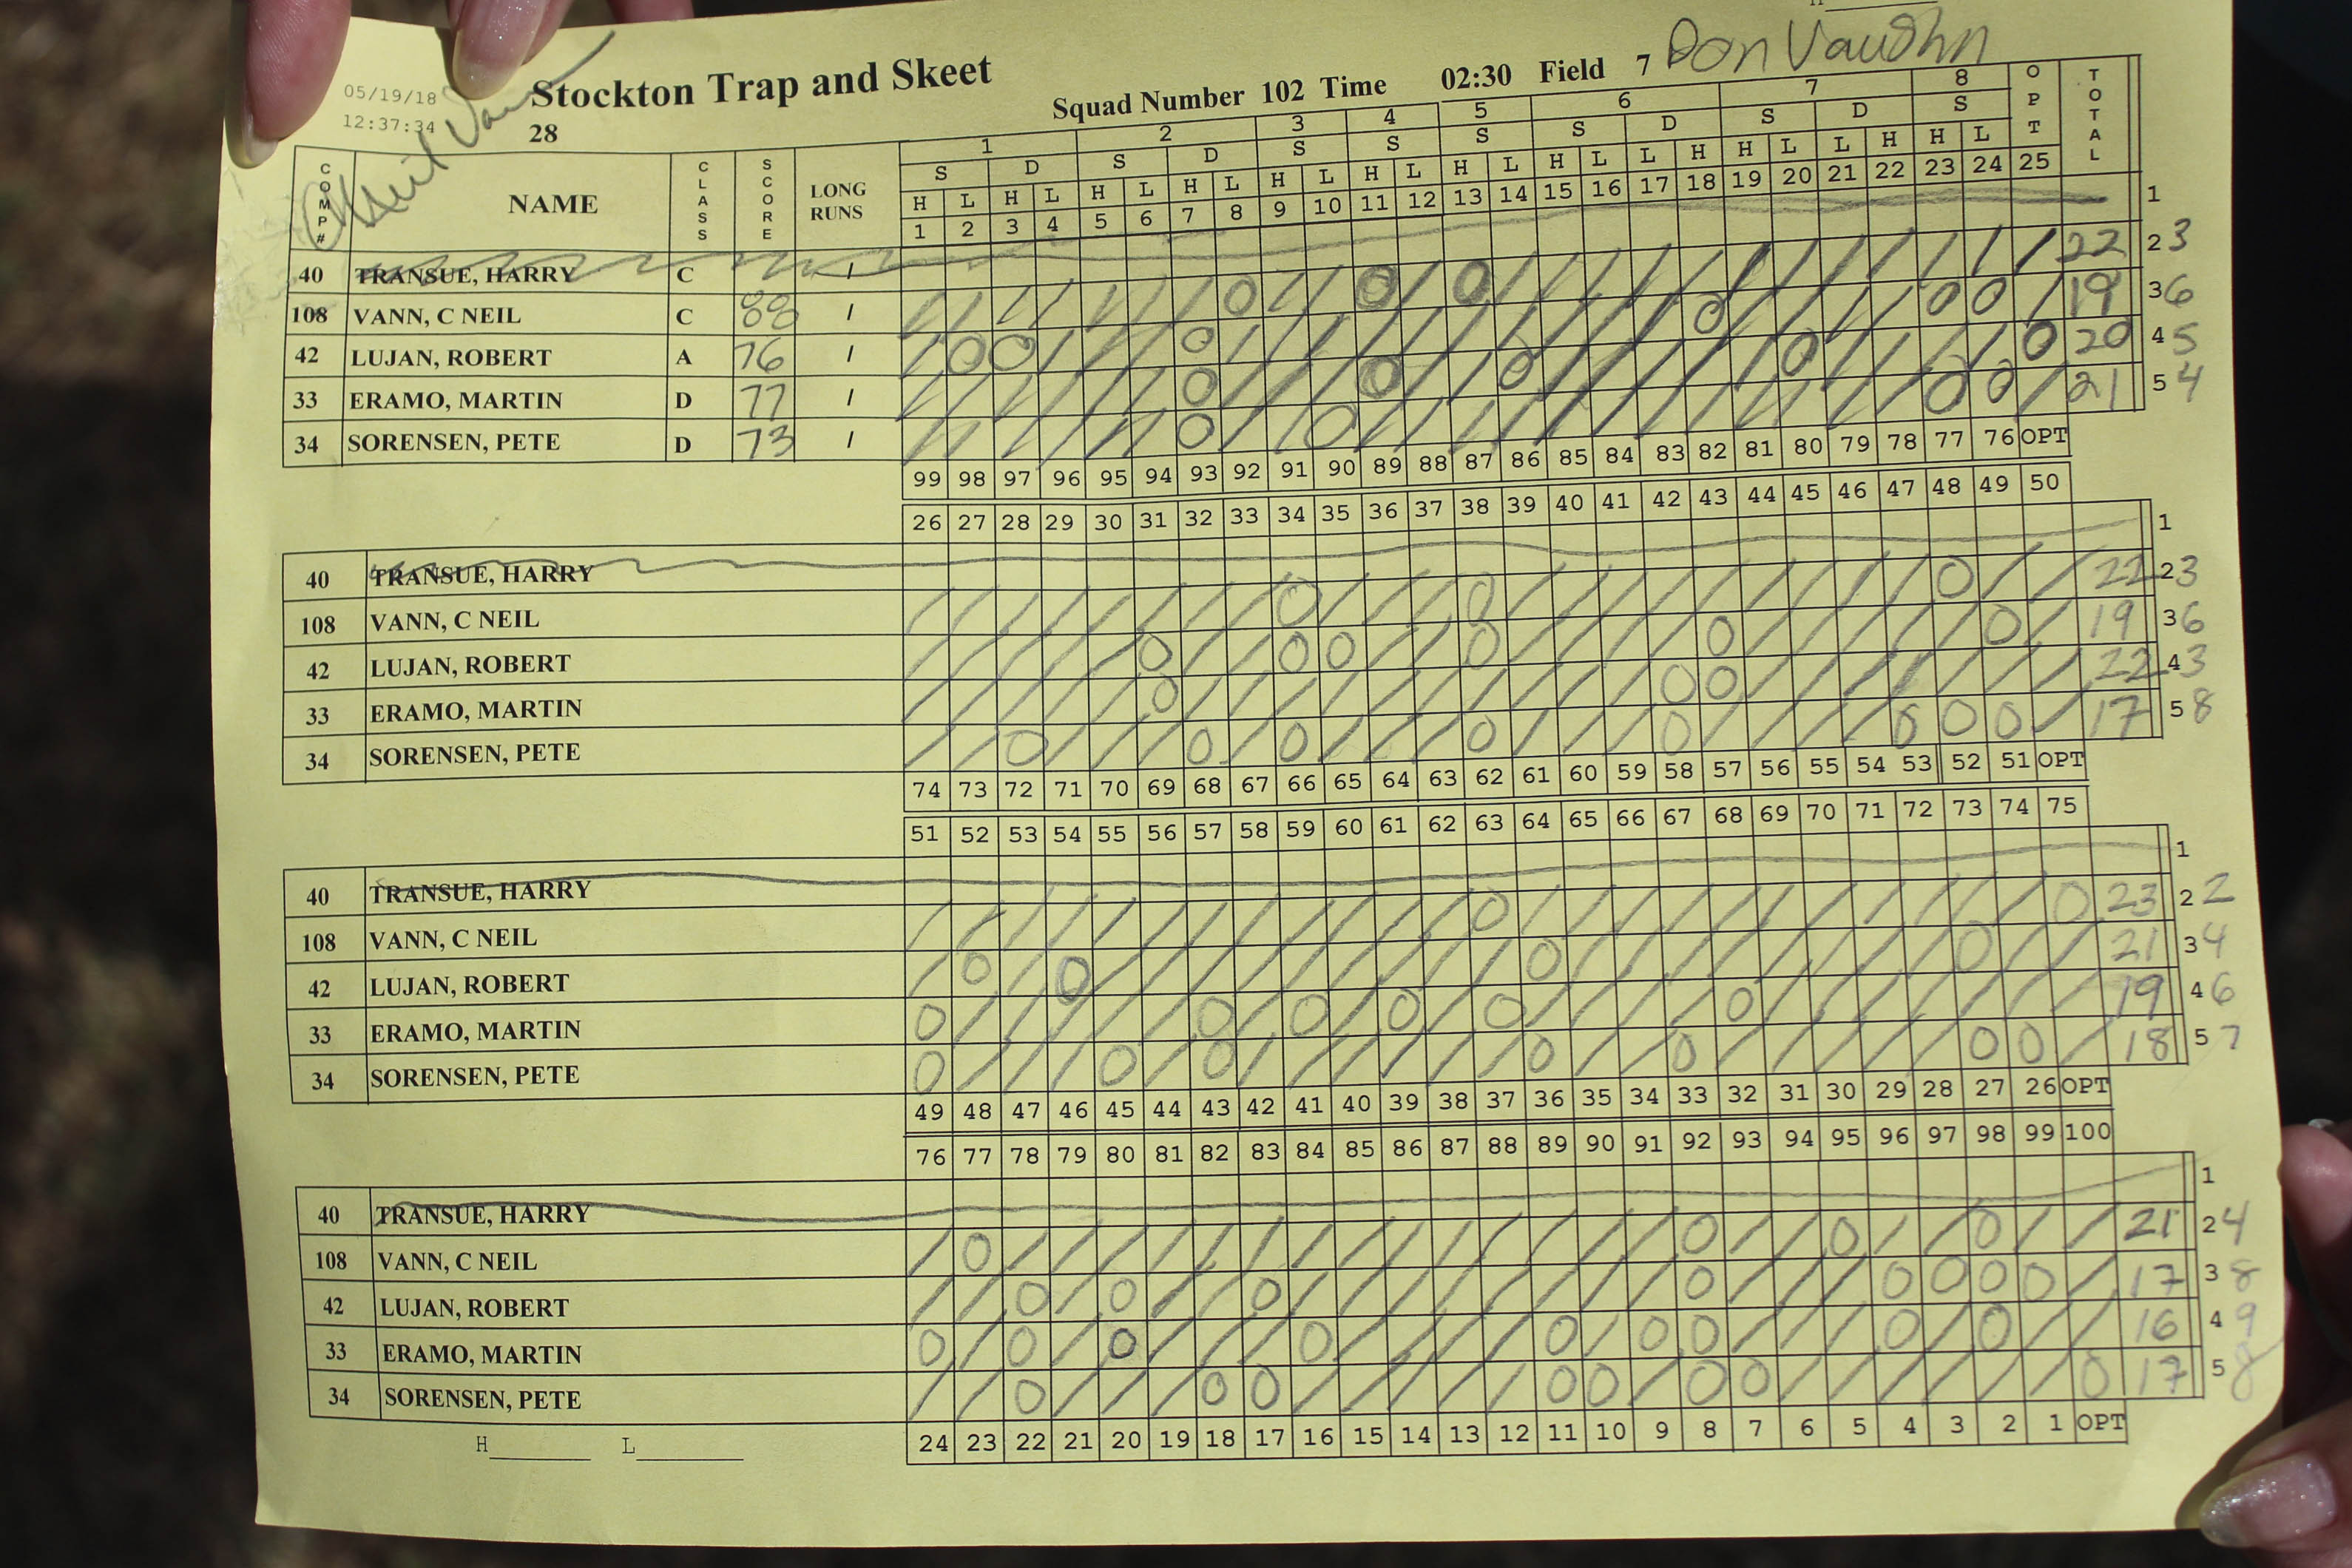 05/19/18
12:37:34
Stockton Trap and Skeet
28
Squad Number 102 Time 02:30 Field 7 Don Vaughn
COMP# NAME CLASS SCORE LONG RUNS OPT TOTAL
1 2 3 4 5 6 7 8
S D S D S S S S D S D S
H L H L H L H L H L H L H L H L L H H L L H H L
1 2 3 4 5 6 7 8 9 10 11 12 13 14 15 16 17 18 19 20 21 22 23 24 25
40 TRANSUE, HARRY C / 1
108 VANN, C NEIL C 88 / 22 2 3
42 LUJAN, ROBERT A 76 / 19 3 6
33 ERAMO, MARTIN D 77 / 20 4 5
34 SORENSEN, PETE D 73 / 21 5 4
99 98 97 96 95 94 93 92 91 90 89 88 87 86 85 84 83 82 81 80 79 78 77 76 OPT
26 27 28 29 30 31 32 33 34 35 36 37 38 39 40 41 42 43 44 45 46 47 48 49 50
40 TRANSUE, HARRY 1
108 VANN, C NEIL 22 2 3
42 LUJAN, ROBERT 19 3 6
33 ERAMO, MARTIN 22 4 3
34 SORENSEN, PETE 17 5 8
74 73 72 71 70 69 68 67 66 65 64 63 62 61 60 59 58 57 56 55 54 53 52 51 OPT
51 52 53 54 55 56 57 58 59 60 61 62 63 64 65 66 67 68 69 70 71 72 73 74 75
40 TRANSUE, HARRY 1
108 VANN, C NEIL 23 2 2
42 LUJAN, ROBERT 21 3 4
33 ERAMO, MARTIN 19 4 6
34 SORENSEN, PETE 18 5 7
49 48 47 46 45 44 43 42 41 40 39 38 37 36 35 34 33 32 31 30 29 28 27 26 OPT
76 77 78 79 80 81 82 83 84 85 86 87 88 89 90 91 92 93 94 95 96 97 98 99 100
40 TRANSUE, HARRY 1
108 VANN, C NEIL 21 2 4
42 LUJAN, ROBERT 17 3 8
33 ERAMO, MARTIN 16 4 9
34 SORENSEN, PETE 17 5 8
24 23 22 21 20 19 18 17 16 15 14 13 12 11 10 9 8 7 6 5 4 3 2 1 OPT
H L